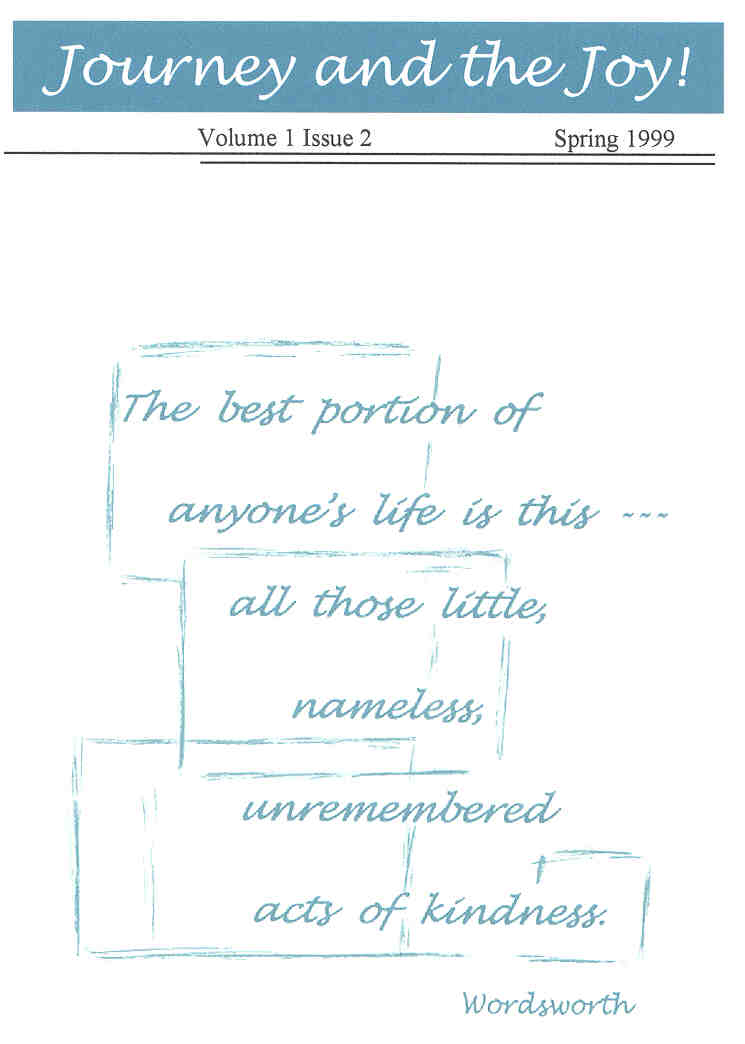 Journey and the Joy!
Volume 1 Issue 2 Spring 1999
The best portion of
anyone's life is this ~~~
all those little,
nameless,
unremembered
acts of kindness.
Wordsworth